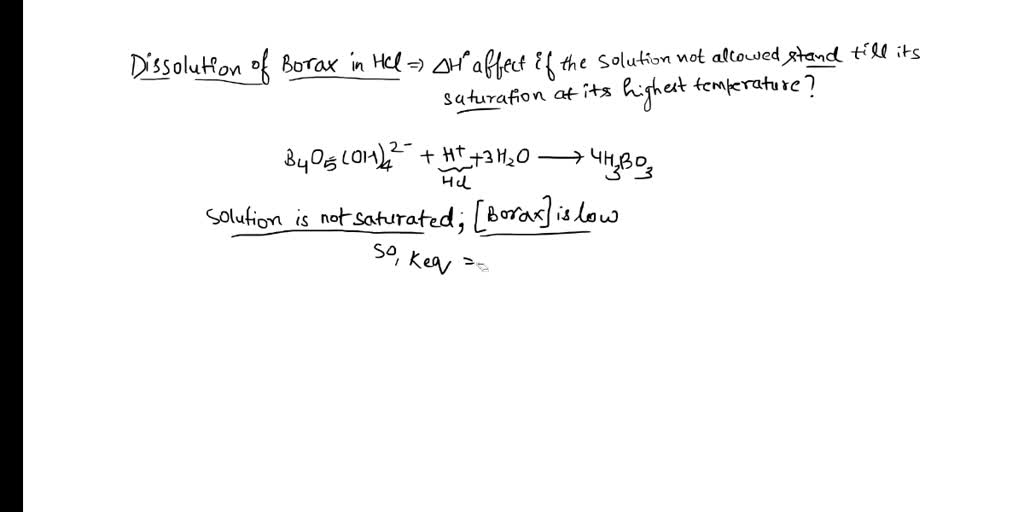 Dissolution of Borax in HCl ⇒ ΔH° affect if the solution not allowed stand till its
saturation at its highest temperature?
B₄O₅(OH)₄²⁻ + H⁺ + 3H₂O ⟶ 4H₃BO₃
HCl
Solution is not saturated; [Borax] is low
So, Keq =